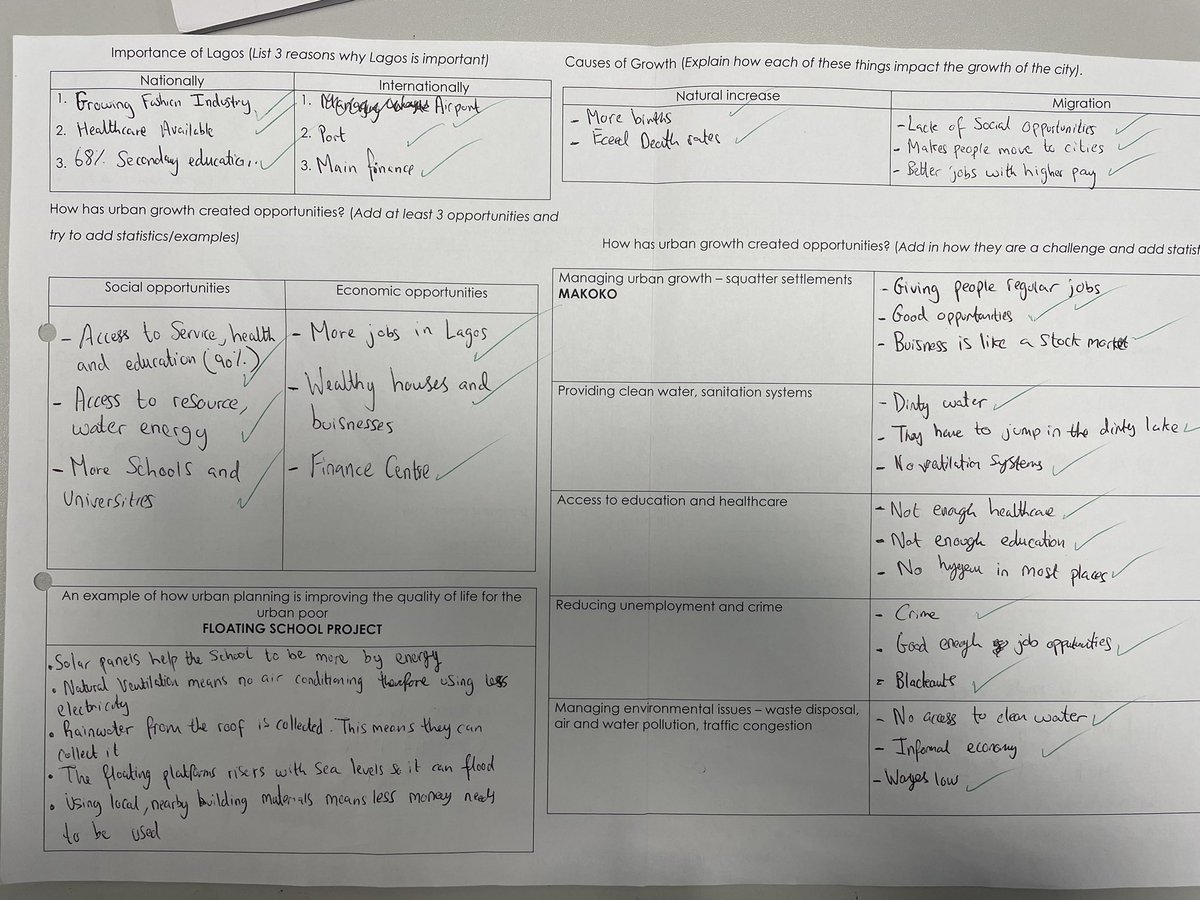 Importance of Lagos (List 3 reasons why Lagos is important)
Nationally
Internationally
1. Growing Fashion Industry
2. Healthcare Available
3. 68% Secondary education..
1. Airport
2. Port
3. Main finance
Causes of Growth (Explain how each of these things impact the growth of the city).
Natural increase
Migration
- More births
- Death rates
- Lack of Social Opportunities
- Makes people move to cities
- Better jobs with higher pay
How has urban growth created opportunities? (Add at least 3 opportunities and
try to add statistics/examples)
Social opportunities
Economic opportunities
- Access to Service, health
and education (90%)
- Access to resource,
water energy
- More Schools and
Universitres
- More jobs in Lagos
- Wealthy houses and
buisnesses
- Finance Centre
An example of how urban planning is improving the quality of life for the
urban poor
FLOATING SCHOOL PROJECT
• Solar panels help the School to be more by energy
• Natural Ventilation means no air conditioning therefore using less
electricity
• Rainwater from the roof is collected. This means they can
collect it
• The floating platforms risers with sea levels so it can flood
• Using local, nearby building materials means less money needs
to be used
How has urban growth created opportunities? (Add in how they are a challenge and add statist
Managing urban growth – squatter settlements
MAKOKO
- Giving people regular jobs
- Good oppurtunities
- Buisness is like a Stock market
Providing clean water, sanitation systems
- Dirty water
- They have to jump in the dirty lake
- No Systems
Access to education and healthcare
- Not enough healthcare
- Not enough education
- No in most places
Reducing unemployment and crime
- Crime
- Good enough job
- Blackouts
Managing environmental issues – waste disposal,
air and water pollution, traffic congestion
- No access to clean water
- Informal economy
- Wages low